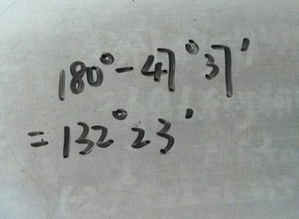 180°-47°37'
=132°23'